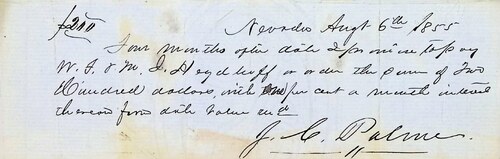 $200 Nevada Augt 6th 1855
Four months after date I promise to pay
W. J. & M. I. Heydlauff or order the sum of Two
Hundred dollars, with per cent a month interest
thereon from date Value
J. C. Palmer